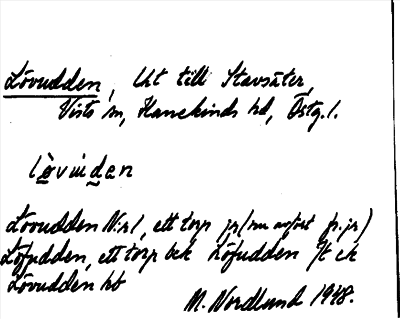 Lövudden, Ut till Stavsäter,
Visto sn, Hanekinds hd, Östg. l.
lövuden
Lövudden N:r 1, ett torp jr (nu avföst fr. jr)
Löfudden, ett torp bek Löfudden Jt ck
Lövudden hb
M. Nordlund 1948.